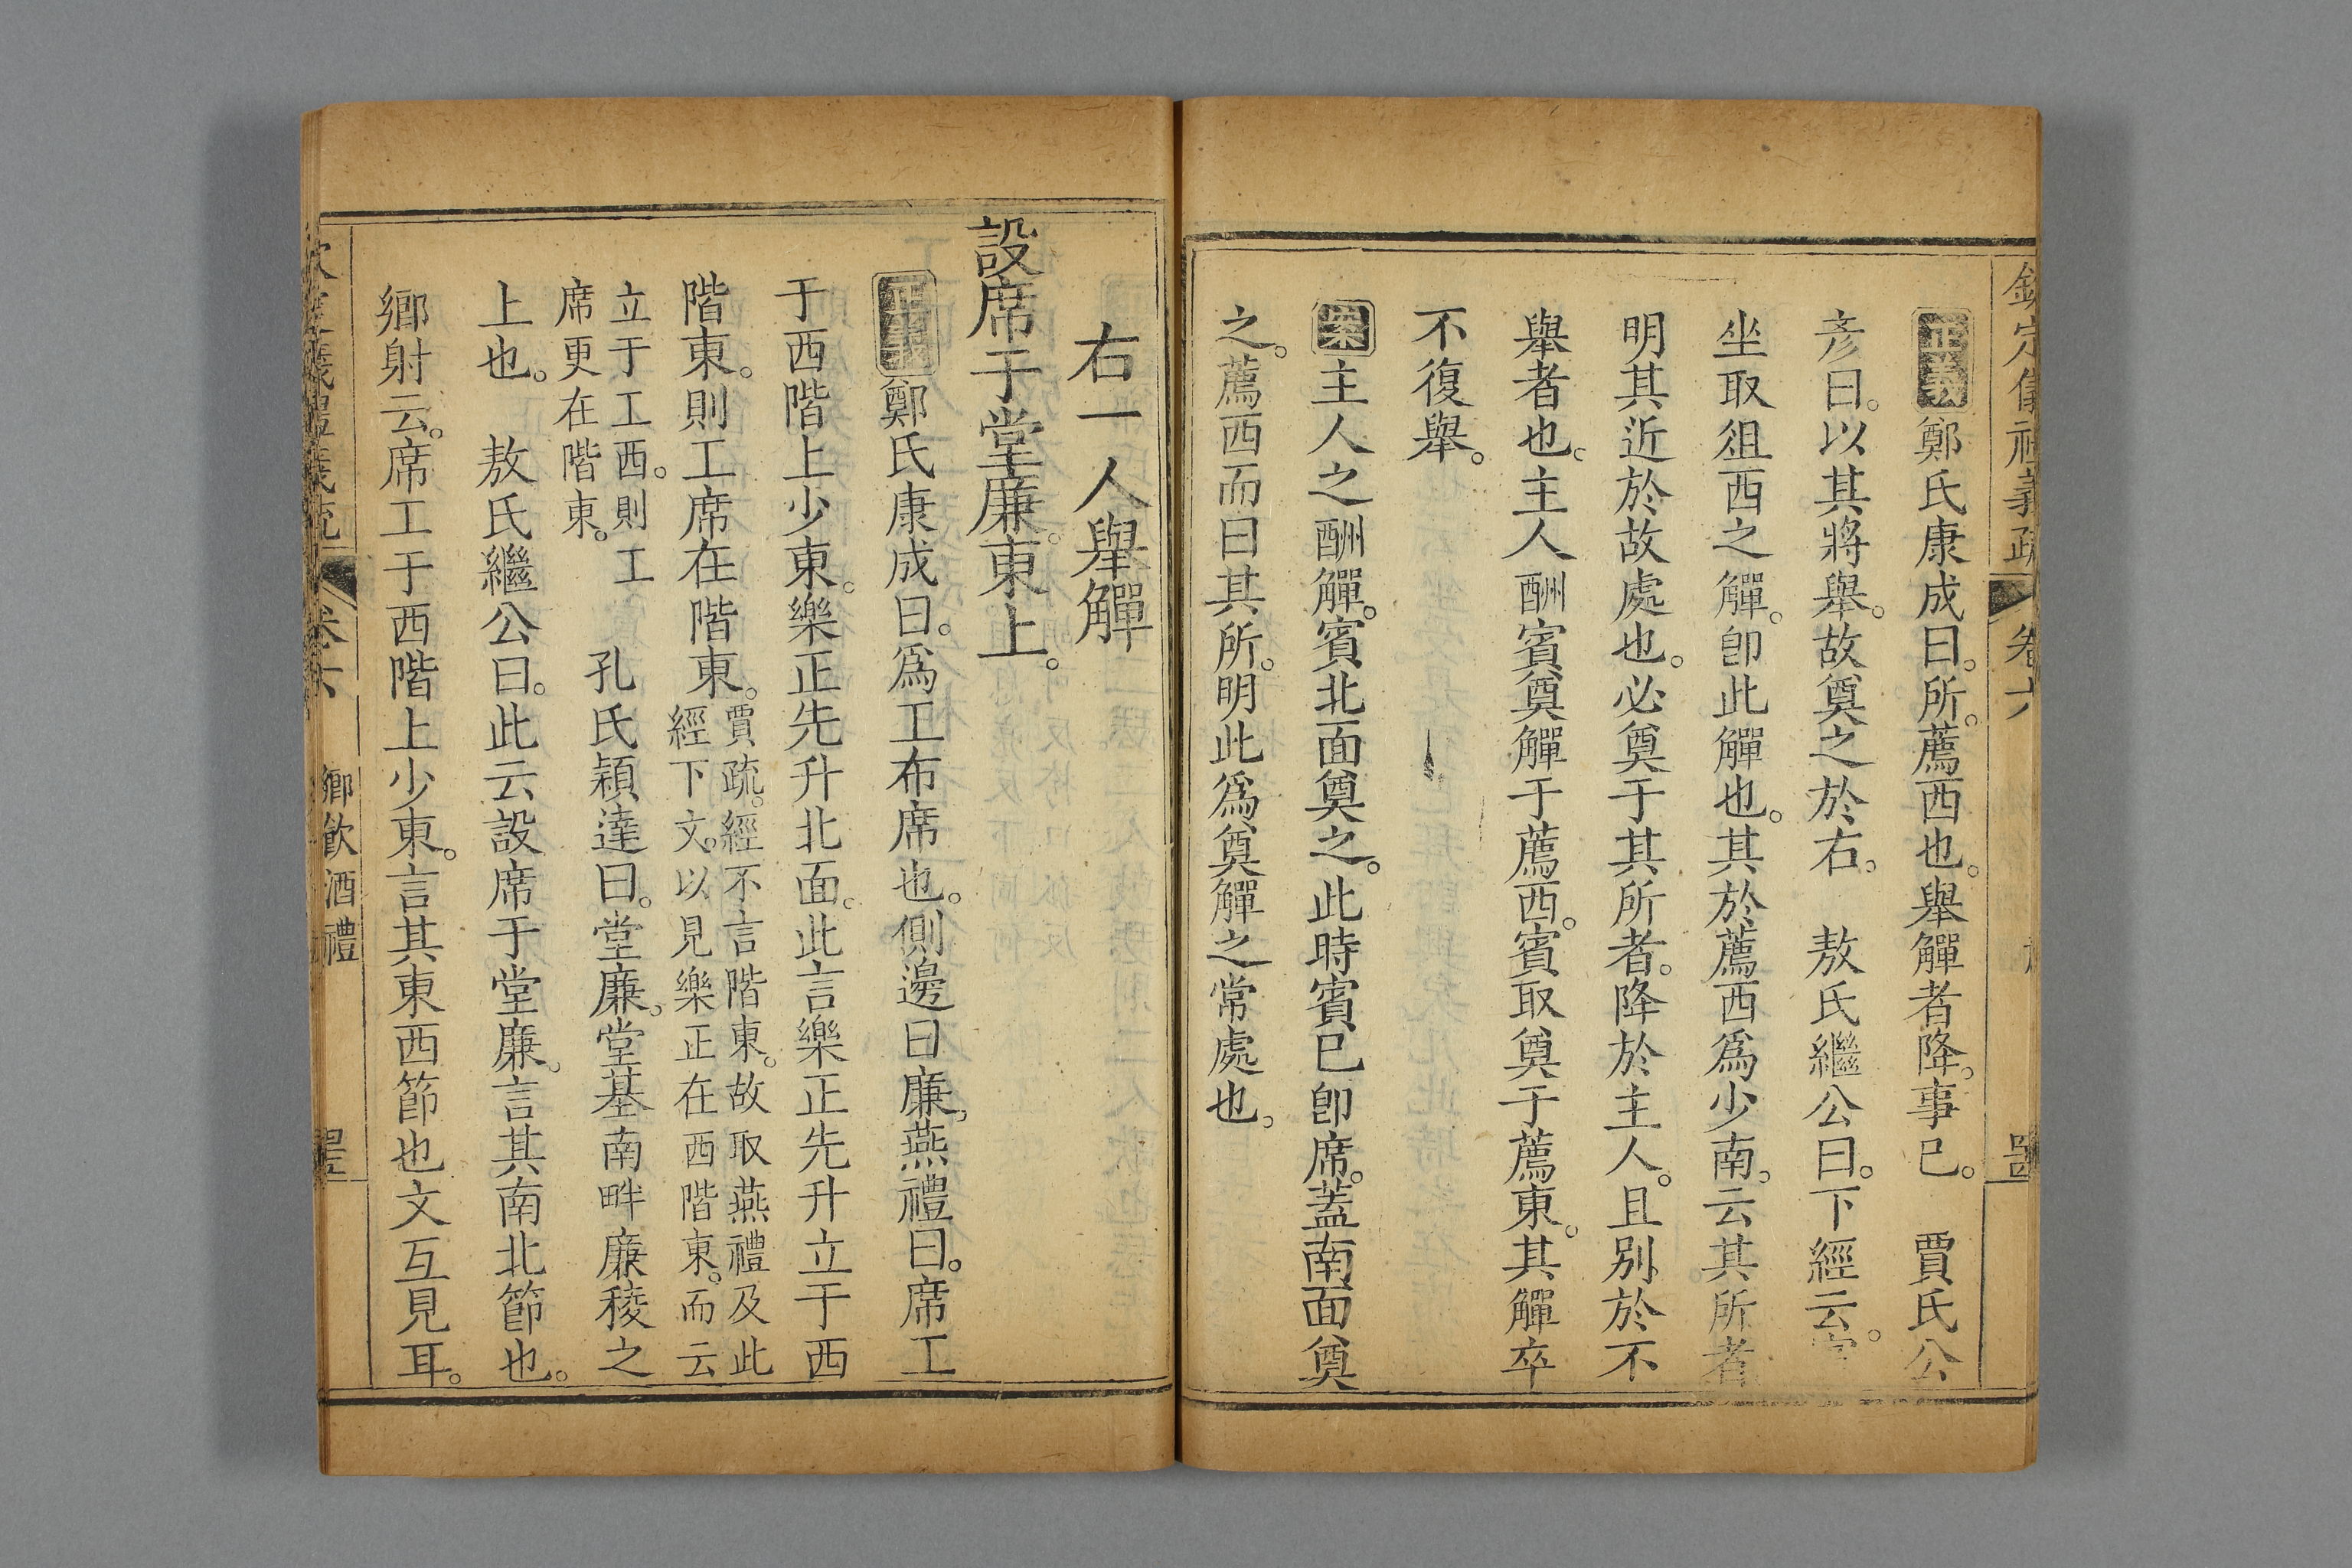 欽定儀禮義疏 卷六
正義鄭氏康成曰。所。薦西也。舉觶者降。事已。 賈氏公
彦曰。以其將舉。故奠之於右。 敖氏繼公曰。下經云。
坐取俎西之觶。卽此觶也。其於薦西爲少南。云其所者
明其近於故處也。必奠于其所者。降於主人。且别於不
舉者也。主人酬賓奠觶于薦西。賓取奠于薦東。其觶卒
不復舉。
案主人之酬觶。賓北面奠之。此時賓已卽席。蓋南面奠
之。薦西而曰其所。明此爲奠觶之常處也。
右一人舉觶
設席于堂廉。東上。
正義鄭氏康成曰。爲工布席也。側邊曰廉。燕禮曰。席工
于西階上少東。樂正先升北面。此言樂正先升立于西
階東。則工席在階東。賈疏。經不言階東。故取燕禮及此
經下文。以見樂正在西階東。而云
立于工西。則工
席更在階東。 孔氏穎達曰。堂廉。堂基南畔廉稜之
上也。 敖氏繼公曰。此云設席于堂廉。言其南北節也。
鄉射云。席工于西階上少東。言其東西節也文互見耳。
欽定儀禮義疏 卷六 鄉飲酒禮